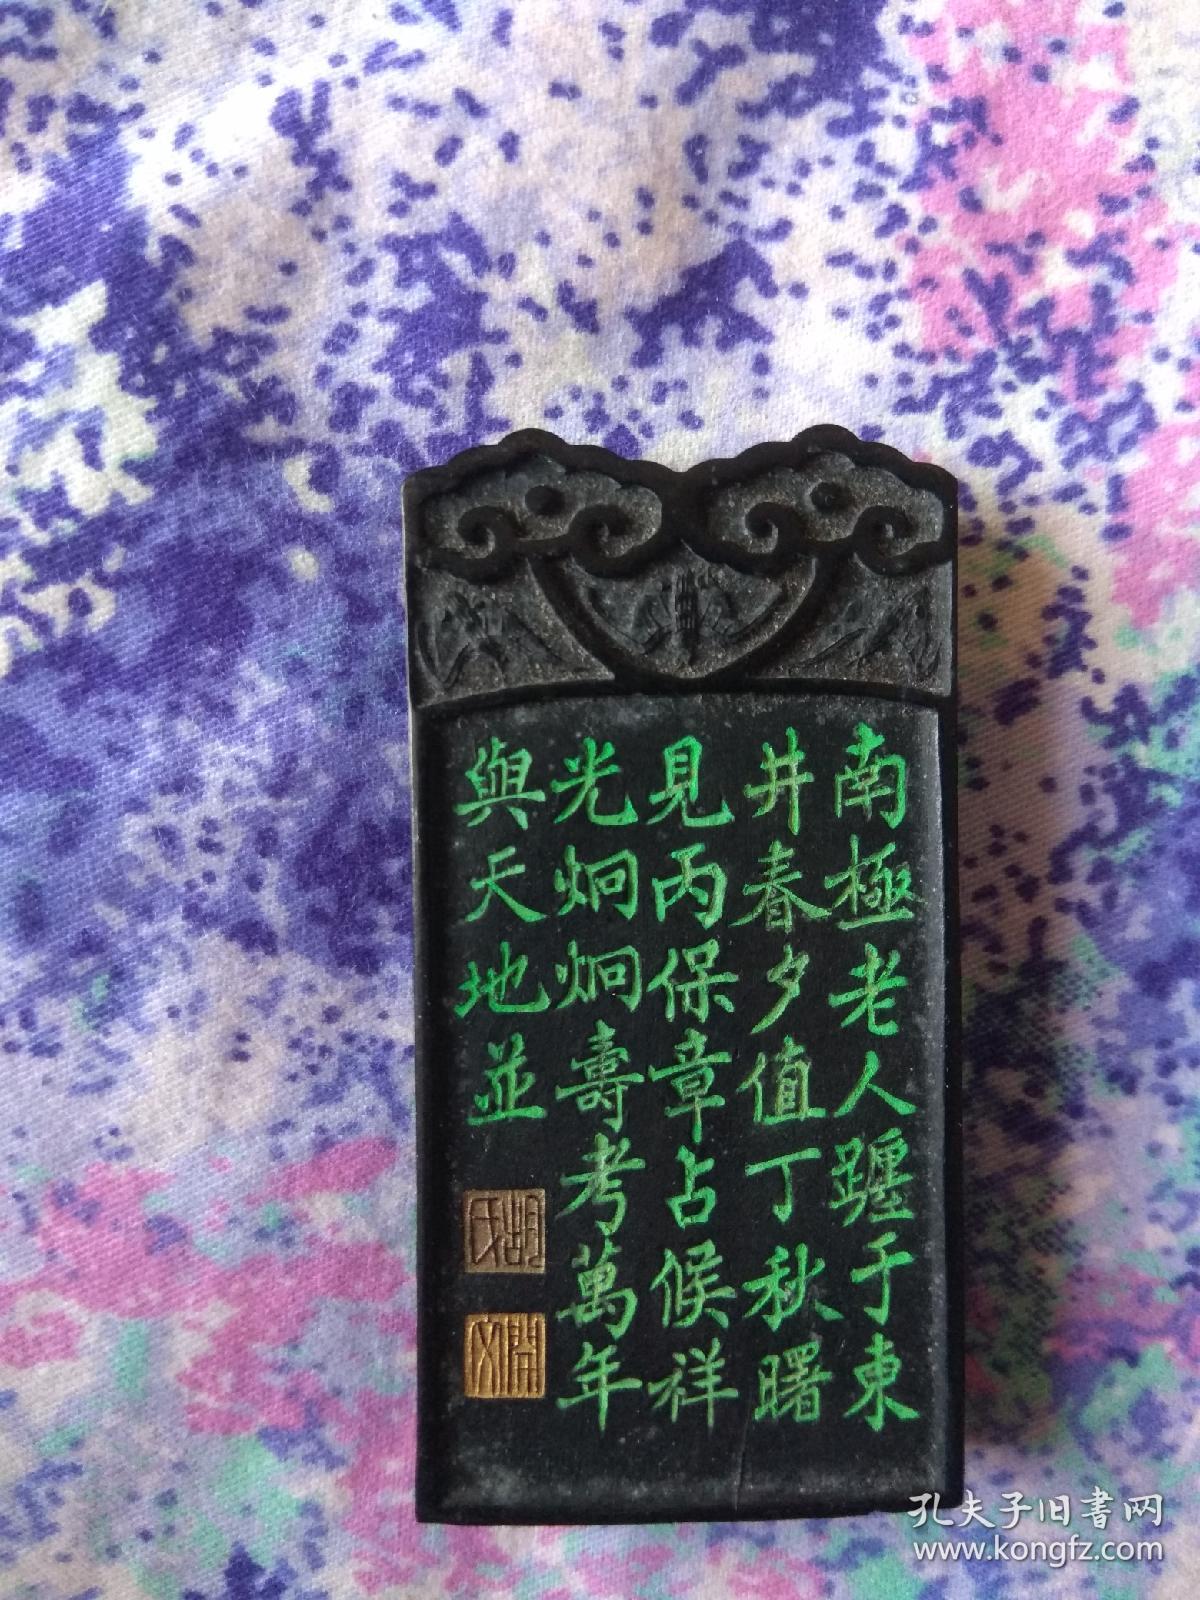 南極老人躔于東
井春夕值丁秋曙
見丙保章占候祥
光炯炯壽考萬年
與天地並
胡氏
開文
孔夫子旧書网
www.kongfz.com